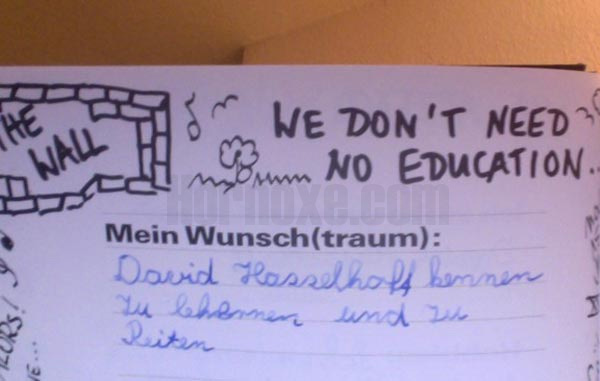 THE
WALL
WE DON'T NEED
NO EDUCATION...
Hornoxe.com
Mein Wunsch(traum):
David Hasselhoff kennen
zu lehrnen und zu
Reiten